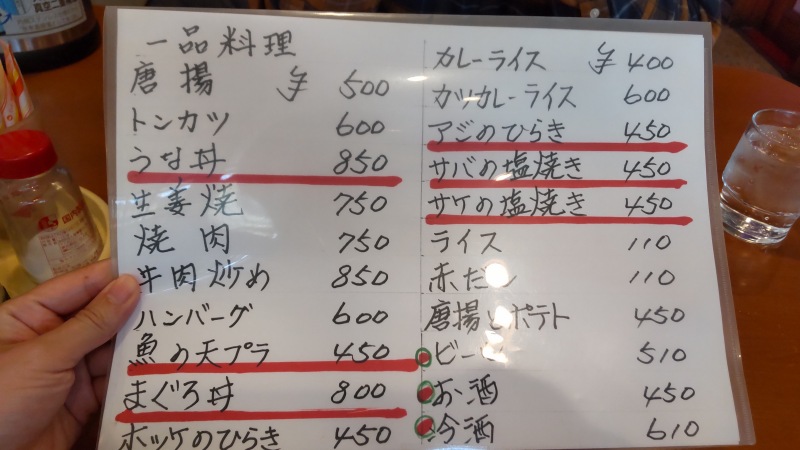 一品料理
唐揚 ¥ 500
トンカツ 600
うな丼 850
生姜焼 750
焼肉 750
牛肉炒め 850
ハンバーグ 600
魚の天プラ 450
まぐろ丼 800
ホッケのひらき 450
カレーライス ¥ 400
カツカレーライス 600
アジのひらき 450
サバの塩焼き 450
サケの塩焼き 450
ライス 110
赤だし 110
唐揚とポテト 450
ビール 510
お酒 450
冷酒 610